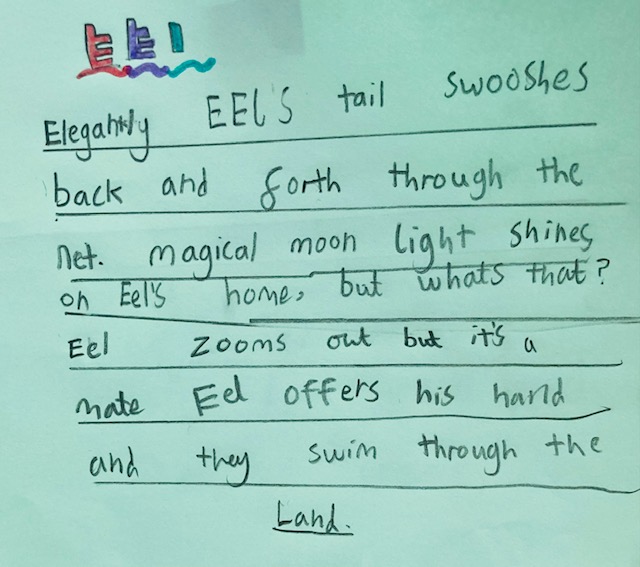 EEl
Elegantly EEl'S tail swooshes
back and forth through the
net. magical moon light shines
on Eel's home, but whats that?
Eel zooms out but it's a
mate Eel offers his hand
and they swim through the
Land.